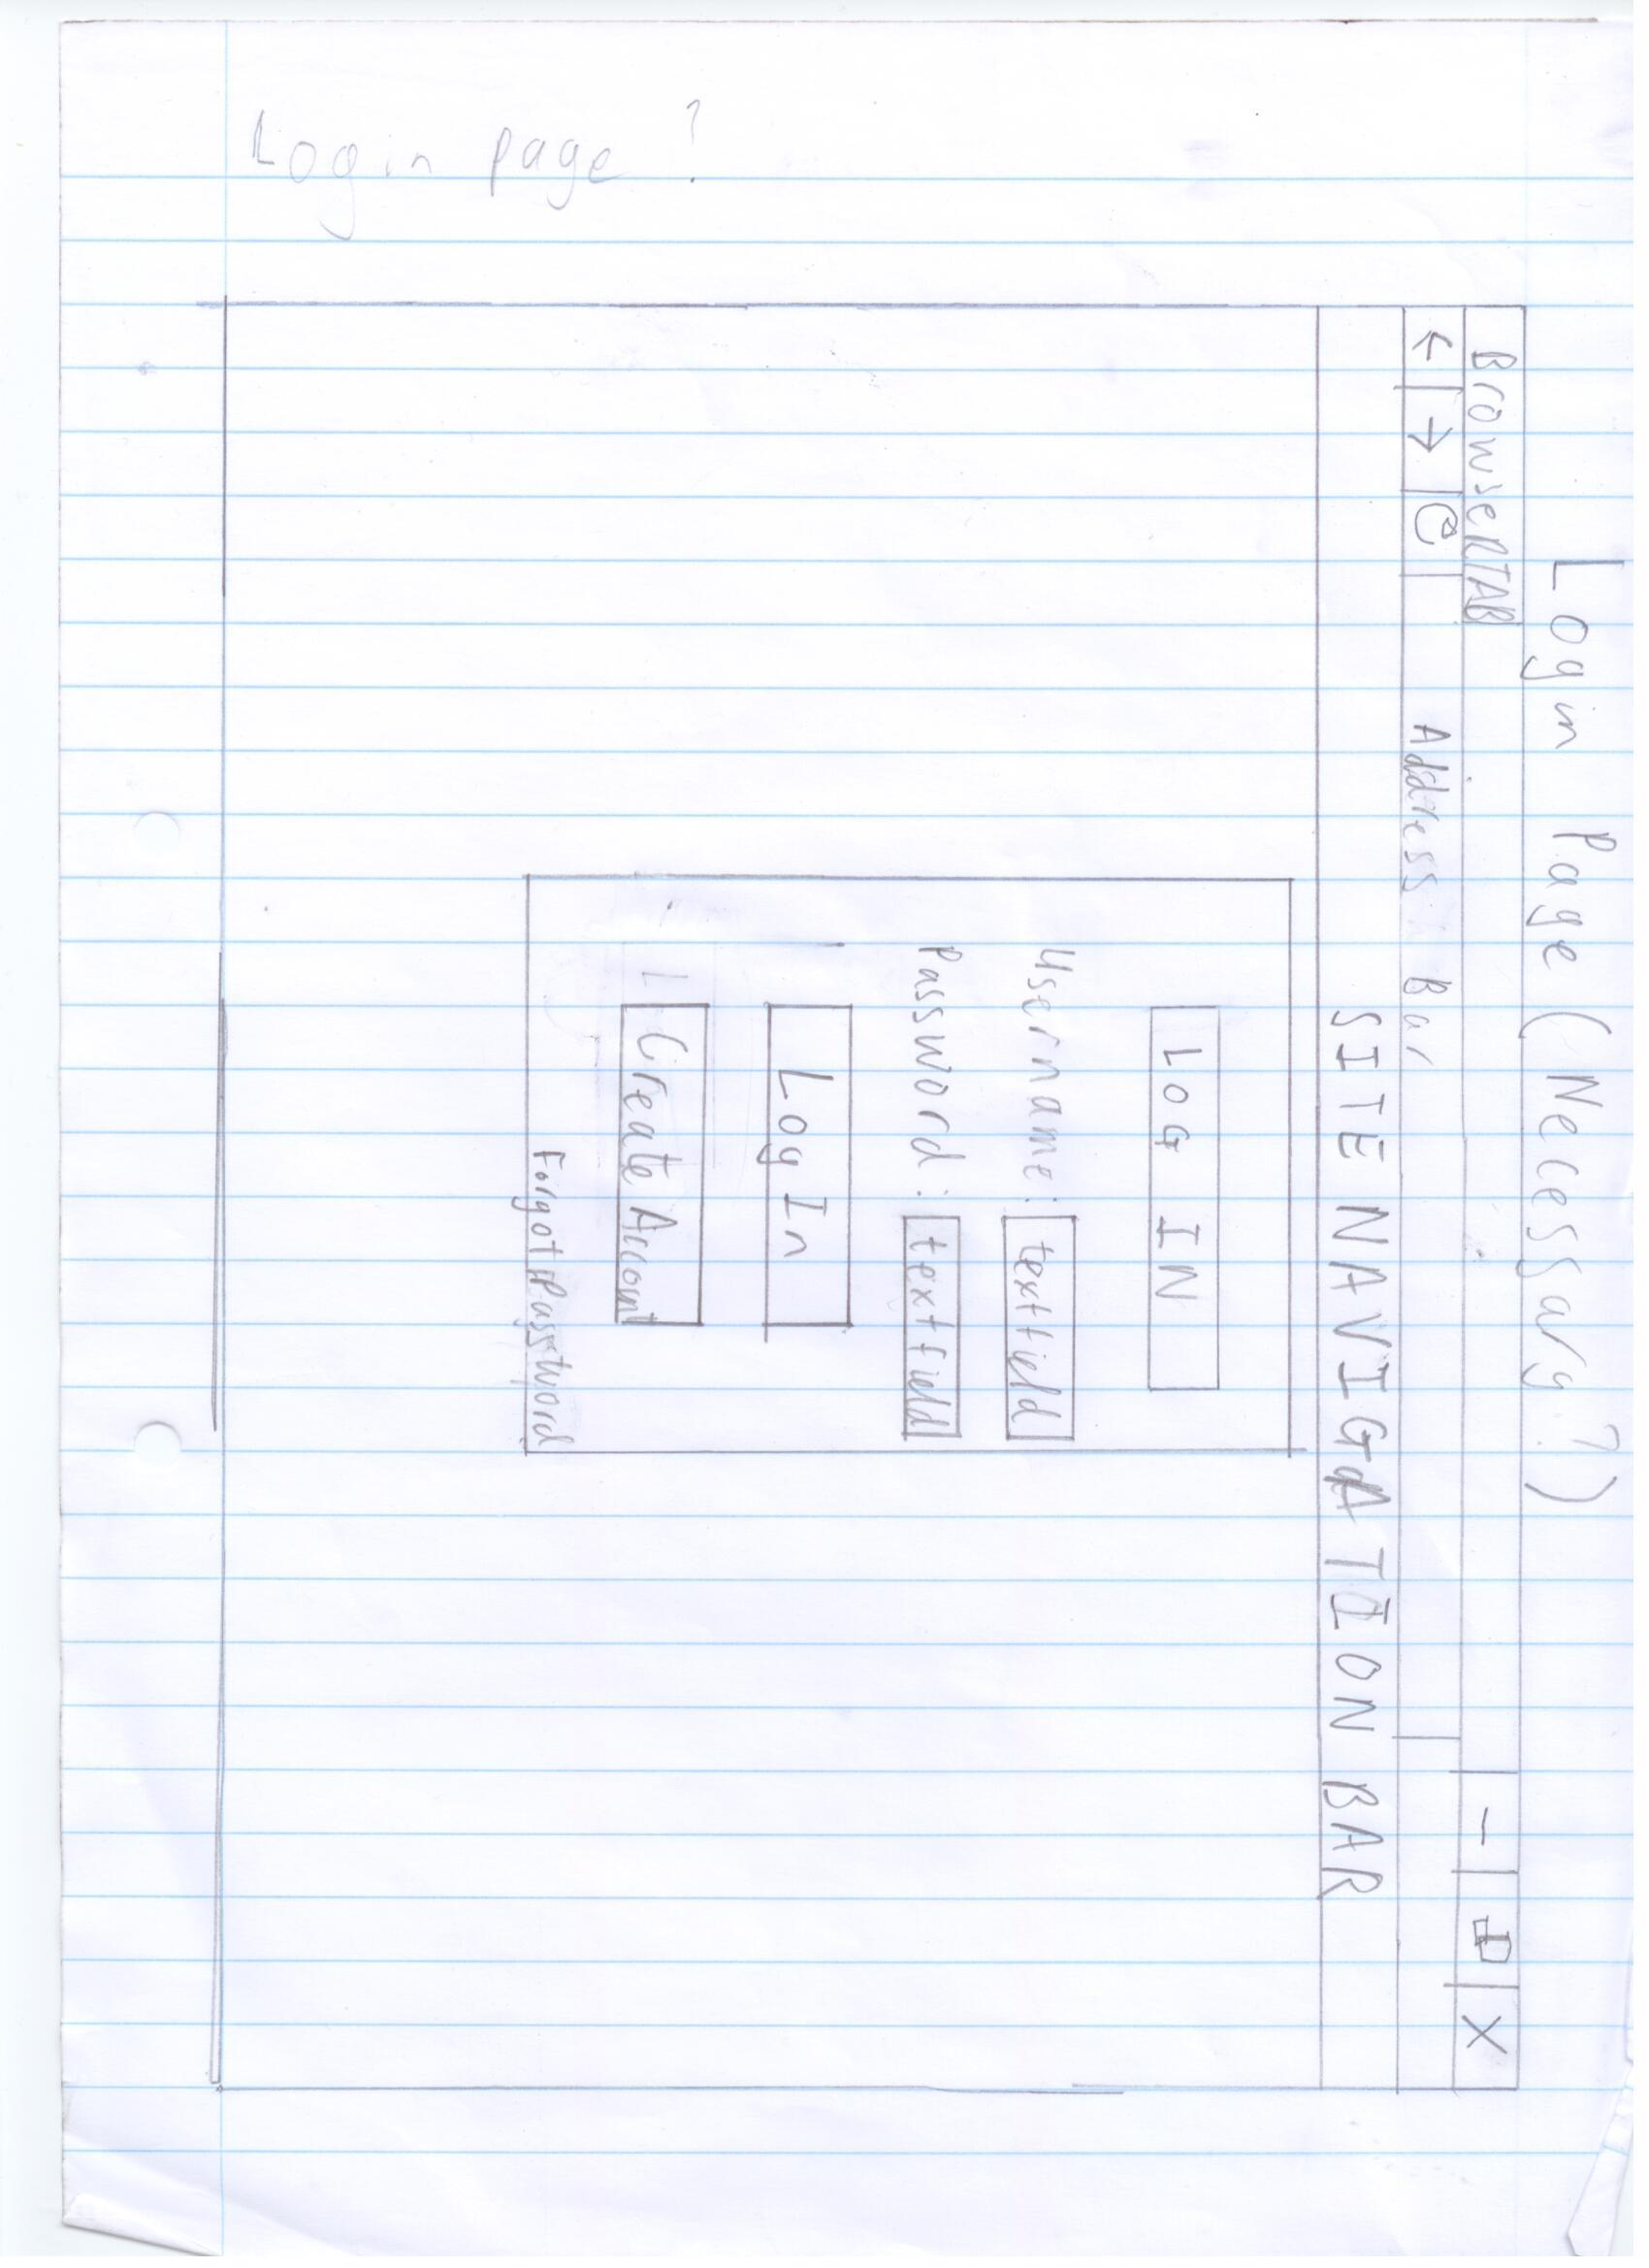 Login Page (Necessary?)
BrowseRTAB
Address Bar
SITE NAVIGATION BAR
LOG IN
Username: textfield
Password: textfield
Log In
Create Account
Forgot Password
Login page?